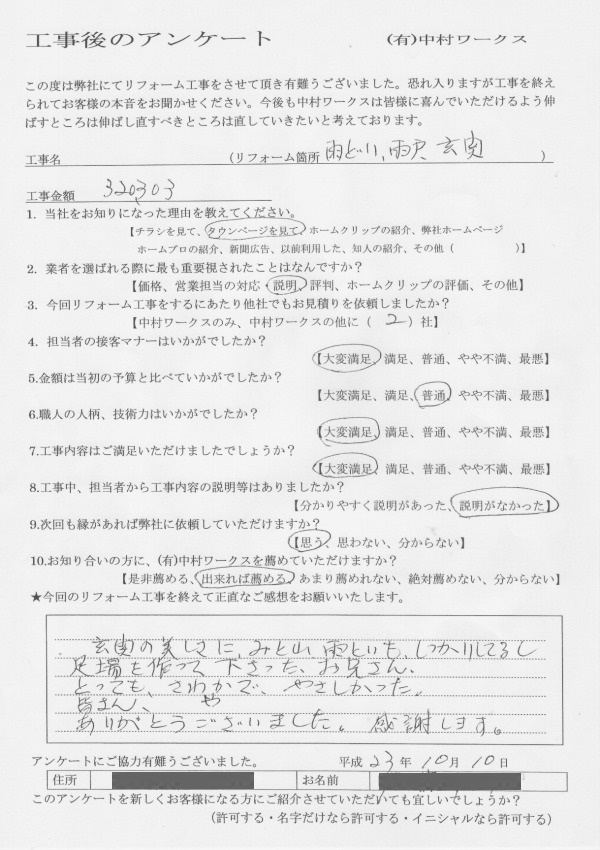 工事後のアンケート (有)中村ワークス
この度は弊社にてリフォーム工事をさせて頂き有難うございました。恐れ入りますが工事を終え
られてお客様の本音をお聞かせください。今後も中村ワークスは皆様に喜んでいただけるよう伸
ばすところは伸ばし直すべきところは直していきたいと考えております。
工事名 (リフォーム箇所 雨どい、雨戸 玄関 )
工事金額 320303
1. 当社をお知りになった理由を教えてください。
【チラシを見て、タウンページを見て、ホームクリップの紹介、弊社ホームページ
ホームプロの紹介、新聞広告、以前利用した、知人の紹介、その他( )】
2. 業者を選ばれる際に最も重要視されたことはなんですか?
【価格、営業担当の対応・説明、評判、ホームクリップの評価、その他】
3. 今回リフォーム工事をするにあたり他社でもお見積りを依頼しましたか?
【中村ワークスのみ、中村ワークスの他に( 2 )社】
4. 担当者の接客マナーはいかがでしたか?
【大変満足、満足、普通、やや不満、最悪】
5.金額は当初の予算と比べていかがでしたか?
【大変満足、満足、普通、やや不満、最悪】
6.職人の人柄、技術力はいかがでしたか?
【大変満足、満足、普通、やや不満、最悪】
7.工事内容はご満足いただけましたでしょうか?
【大変満足、満足、普通、やや不満、最悪】
8.工事中、担当者から工事内容の説明等はありましたか?
【分かりやすく説明があった、説明がなかった】
9.次回も縁があれば弊社に依頼していただけますか?
【思う、思わない、分からない】
10.お知り合いの方に、(有)中村ワークスを薦めていただけますか?
【是非薦める、出来れば薦める、あまり薦めれない、絶対薦めない、分からない】
★今回のリフォーム工事を終えて正直なご感想をお願いいたします。
玄関の美しさに、 雨といも、しっかりしてるし
足場を作って下さった、お兄さん、
とっても、さわやかで、やさしかった。
皆さん、
ありがとうございました。 感謝します。
アンケートにご協力有難うございました。 平成 23 年 10 月 10 日
住所 お名前
このアンケートを新しくお客様になる方にご紹介させていただいても宜しいでしょうか?
(許可する・名字だけなら許可する・イニシャルなら許可する)